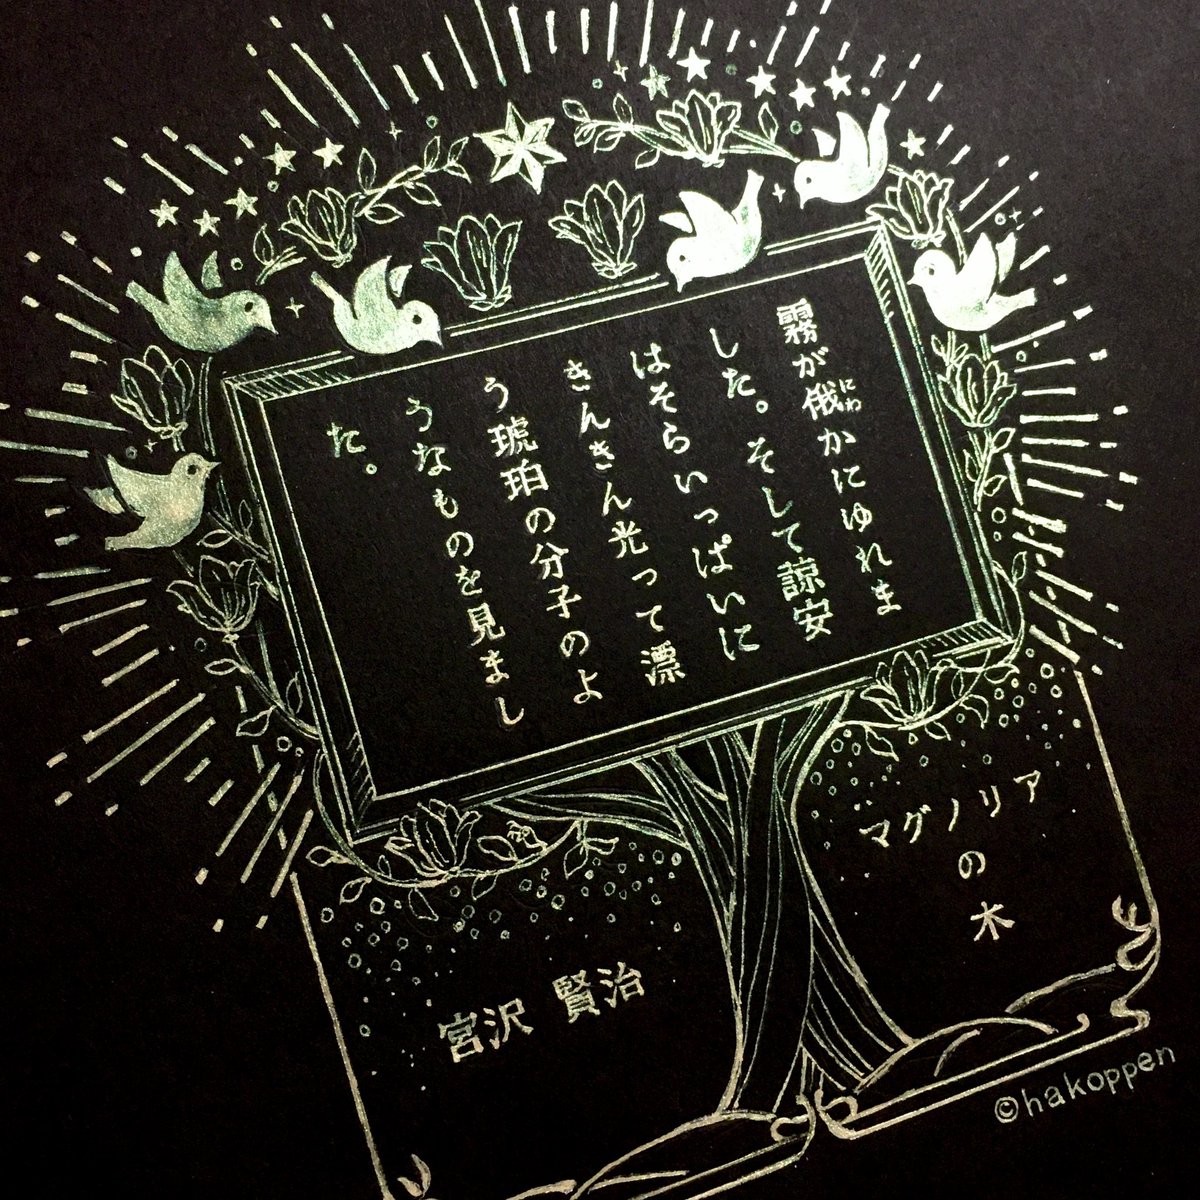 霧が俄かにゆれま
にわ
した。そして諒安
はそらいっぱいに
きんきん光って漂
う琥珀の分子のよ
うなものを見まし
た。
マグノリア
の
木
宮沢 賢治
©hakoppen